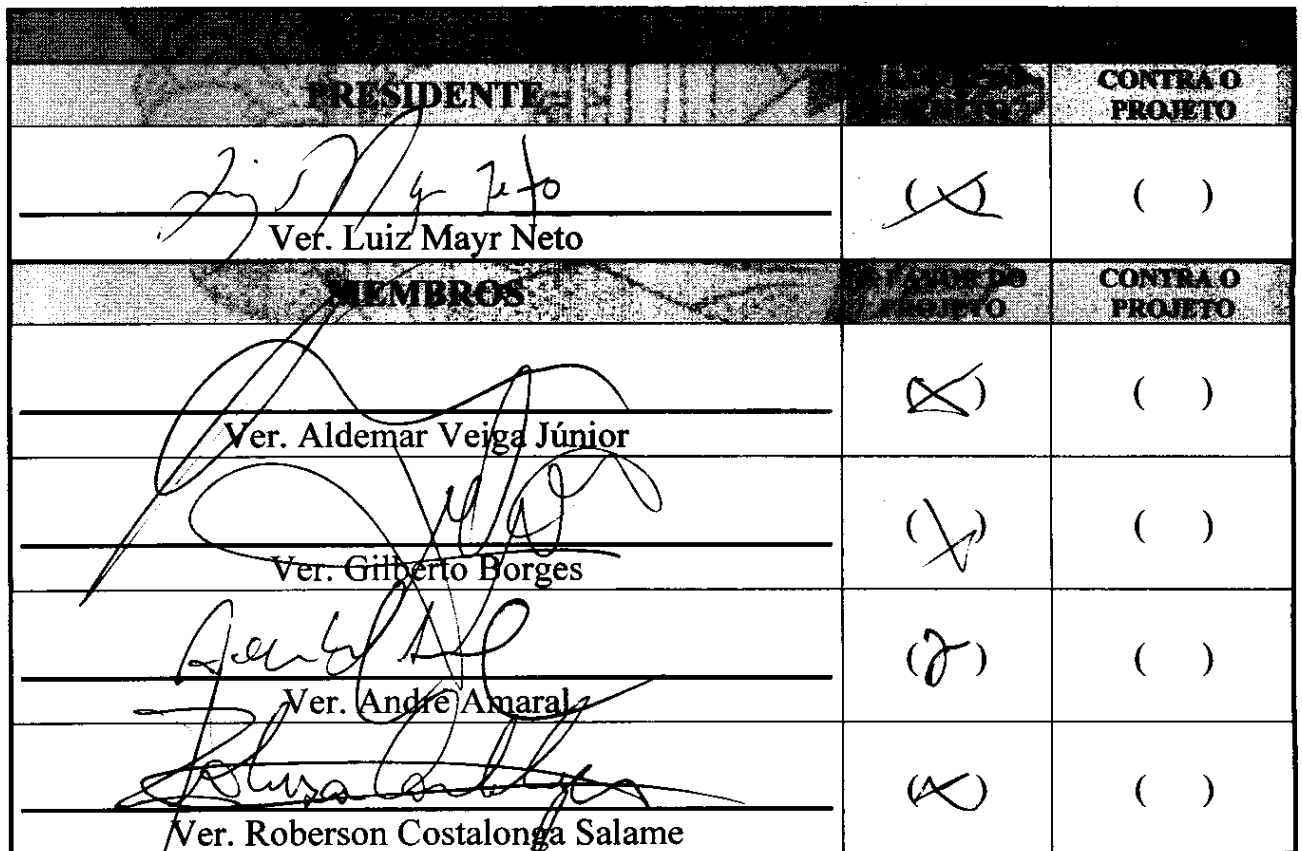 PRESIDENTE
CONTRA O
PROJETO
Luiz Mayr Neto
( X )
( )
Ver. Luiz Mayr Neto
MEMBROS
A FAVOR DO
PROJETO
CONTRA O
PROJETO
( X )
( )
Ver. Aldemar Veiga Júnior
( X )
( )
Ver. Gilberto Borges
( )
( )
Ver. André Amaral
( X )
( )
Ver. Roberson Costalonga Salame